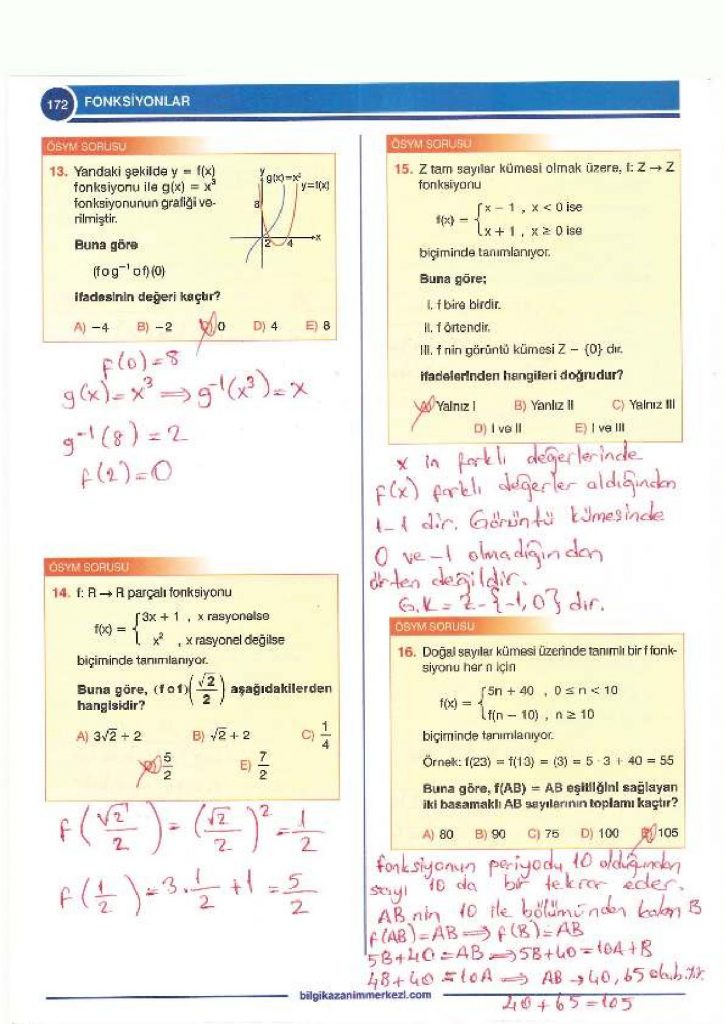 172 FONKSİYONLAR
ÖSYM SORUSU
13. Yandaki şekilde y = f(x)
fonksiyonu ile g(x) = x³
fonksiyonunun grafiği ve-
rilmiştir.
Buna göre
(fog⁻¹of)(0)
ifadesinin değeri kaçtır?
y
g(x)=x³
y=f(x)
8
2 4
x
A) −4 B) −2 C) 0 D) 4 E) 8
f(0)=8
g(x)=x³ ⟹ g⁻¹(x³)=x
g⁻¹(8)=2
f(2)=0
ÖSYM SORUSU
14. f: R → R parçalı fonksiyonu
f(x) = { 3x + 1 , x rasyonelse
x² , x rasyonel değilse
biçiminde tanımlanıyor.
Buna göre, (fof)(√2/2) aşağıdakilerden
hangisidir?
A) 3√2 + 2 B) √2 + 2 C) 1/4
D) 5/2 E) 7/2
f(√2/2) = (√2/2)² = 1/2
f(1/2) = 3.1/2 + 1 = 5/2
ÖSYM SORUSU
15. Z tam sayılar kümesi olmak üzere, f: Z → Z
fonksiyonu
f(x) = { x − 1 , x < 0 ise
x + 1 , x ≥ 0 ise
biçiminde tanımlanıyor.
Buna göre;
I. f bire birdir.
II. f örtendir.
III. f nin görüntü kümesi Z − {0} dır.
ifadelerinden hangileri doğrudur?
A) Yalnız I B) Yanlız II C) Yalnız III
D) I ve II E) I ve III
x in farklı değerlerinde
f(x) farklı değerler aldığından
1-1 dir. Görüntü kümesinde
0 ve -1 olmadığından
örten değildir.
G.K = Z-{-1,0} dır.
ÖSYM SORUSU
16. Doğal sayılar kümesi üzerinde tanımlı bir f fonk-
siyonu her n için
f(x) = { 5n + 40 , 0 ≤ n < 10
f(n − 10) , n ≥ 10
biçiminde tanımlanıyor.
Örnek: f(23) = f(13) = (3) = 5 · 3 + 40 = 55
Buna göre, f(AB) = AB eşitliğini sağlayan
iki basamaklı AB sayılarının toplamı kaçtır?
A) 80 B) 90 C) 75 D) 100 E) 105
fonksiyonun periyodu 10 olduğundan
sayı 10 da bir tekrar eder.
AB nin 10 ile bölümünden kalan B
f(AB)=AB ⟹ f(B)=AB
5B+40=AB ⟹ 5B+40=10A+B
4B+40=10A ⟹ AB → 40, 65
40+65=105
bilgikazanimmerkezi.com